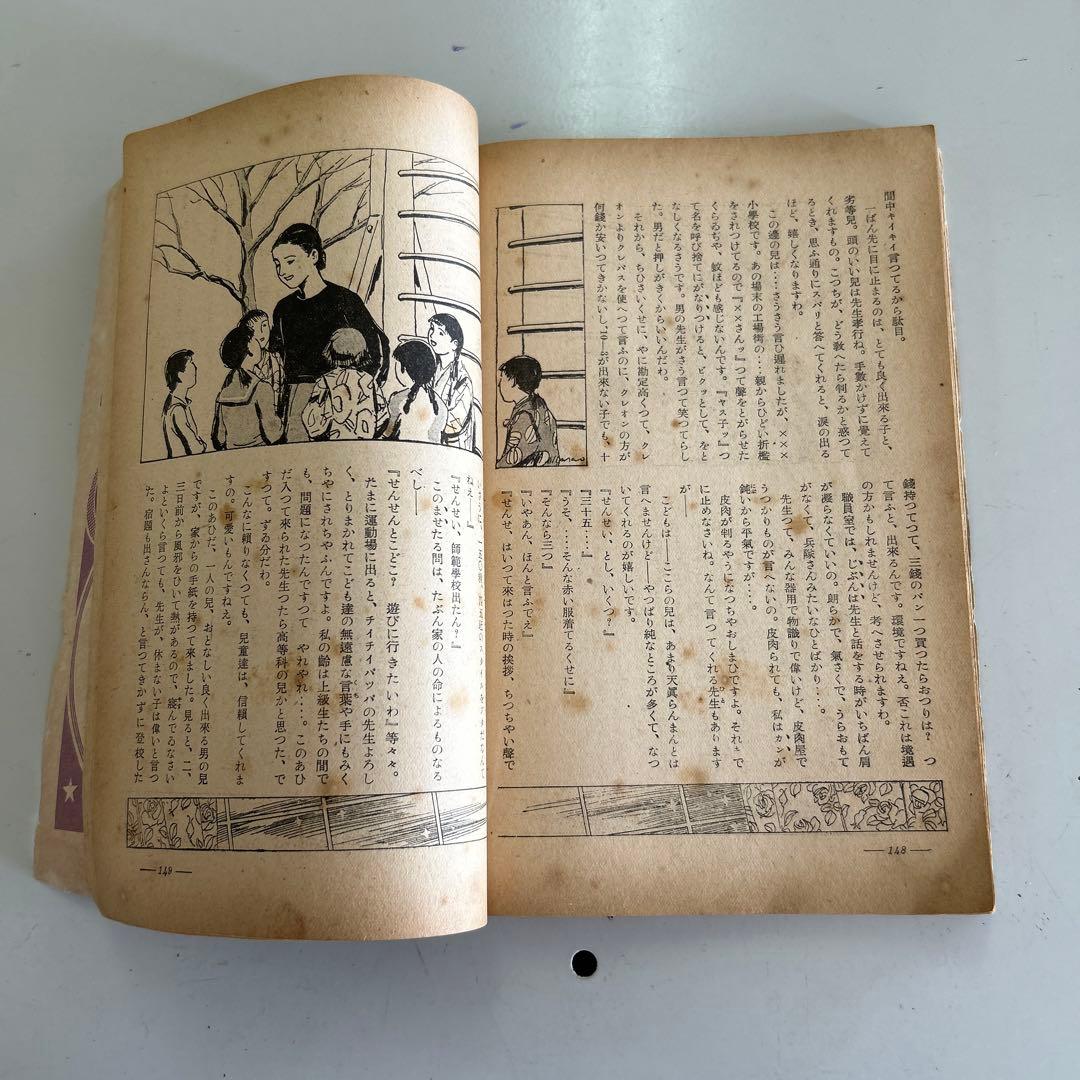 間中キイキイ言つてるから駄目。
一ばん先に目に止まるのは、とても良く出來る子と、
劣等兒。頭のいい兒は先生孝行ね。手數かけずに覺えて
くれますもの。こつちが、どう敎へたら判るかと惑つて
るとき、思ふ通りにスパリと答へてくれると、淚の出る
ほど、嬉しくなりますわ。
この邊の兒は‥‥さうさう言ひ遲れましたが、×××
小學校です。あの場末の工場街の‥‥親からひどい折檻
をされつけてるので『××さんッ』つて聲をとがらせた
くらゐぢや、蚊ほども感じないんです。『ヤス子ッ』つ
て名を呼び捨てにがなりつけると、ビクッとして、をと
なしくなるさうです。男の先生がさう言つて笑つてらし
た。男だと押しがきくからいいんだわ。
それから、ちひさいくせに、やに勘定高くつて、クレ
オンよりクレパスを使へつて言ふのに、クレオンの方が
何錢か安いつてきかないし、10−8が出來ない子でも、十
錢持つてつて、三錢のパン一つ買つたらおつりは？ つ
て言ふと、出來るんです。環境ですねえ。否、これは境遇
の方かもしれませんけど、考へさせられますわ。
職員室では、じぶんは先生と話をする時がいちばん肩
が凝らなくていいの。朗らかで、氣さくで、うらおもて
がなくて、兵隊さんみたいなひとばかり‥‥。
先生つて、みんな器用で物識りで偉いけど、皮肉屋で
うつかりものが言へないの。皮肉られても、私はカンが
鈍いから平氣ですが‥‥。
皮肉が判るやうになつちやおしまひですよ。それまで
に止めなさいね。なんて言つてくれる先生もあります
が――
こどもは――ここらの兒は、あまり天眞らんまんとは
言へませんけど――やつぱり純なところが多くて、なつ
いてくれるのが嬉しいです。
『せんせい、とし、いくつ？』
『三十五‥‥』
『うそ、‥‥そんな赤い服着てるくせに』
『そんなら三つ』
『いやあん、ほんと言ふでえ』
『せんせ、はいつて來はつた時の挨拶、ちつちやい聲で
― 148 ―
ねえ―』
『せんせい、師範學校出たん？』
このませたる問は、たぶん家の人の命によるものなる
べし――
『せんせんとこどこ？ 遊びに行きたいわ』等々。
たまに運動場に出ると、チイチイパッパの先生よろし
く、とりまかれてこども達の無遠慮な言葉や手にもみく
ちやにされちやふんですよ。私の齡は上級生たちの間で
も、問題になつたんですつて やれやれ‥‥。このあひ
だ入つて來られた先生つたら高等科の兒かと思つた、で
すつて。ずゐ分だわ。
こんなに賴りなくつても、兒童達は、信賴してくれま
すの。可愛いもんですねえ。
このあひだ、一人の兒、おとなしい良く出來る男の兒
ですが、家からの手紙を持つて來ました。見ると、二、
三日前から風邪をひいて熱があるので、寢んでるなさい
よといくら言つても、先生が、休まない子は偉いと言つ
た。宿題も出さんならん、と言つてきかずに登校した
― 149 ―